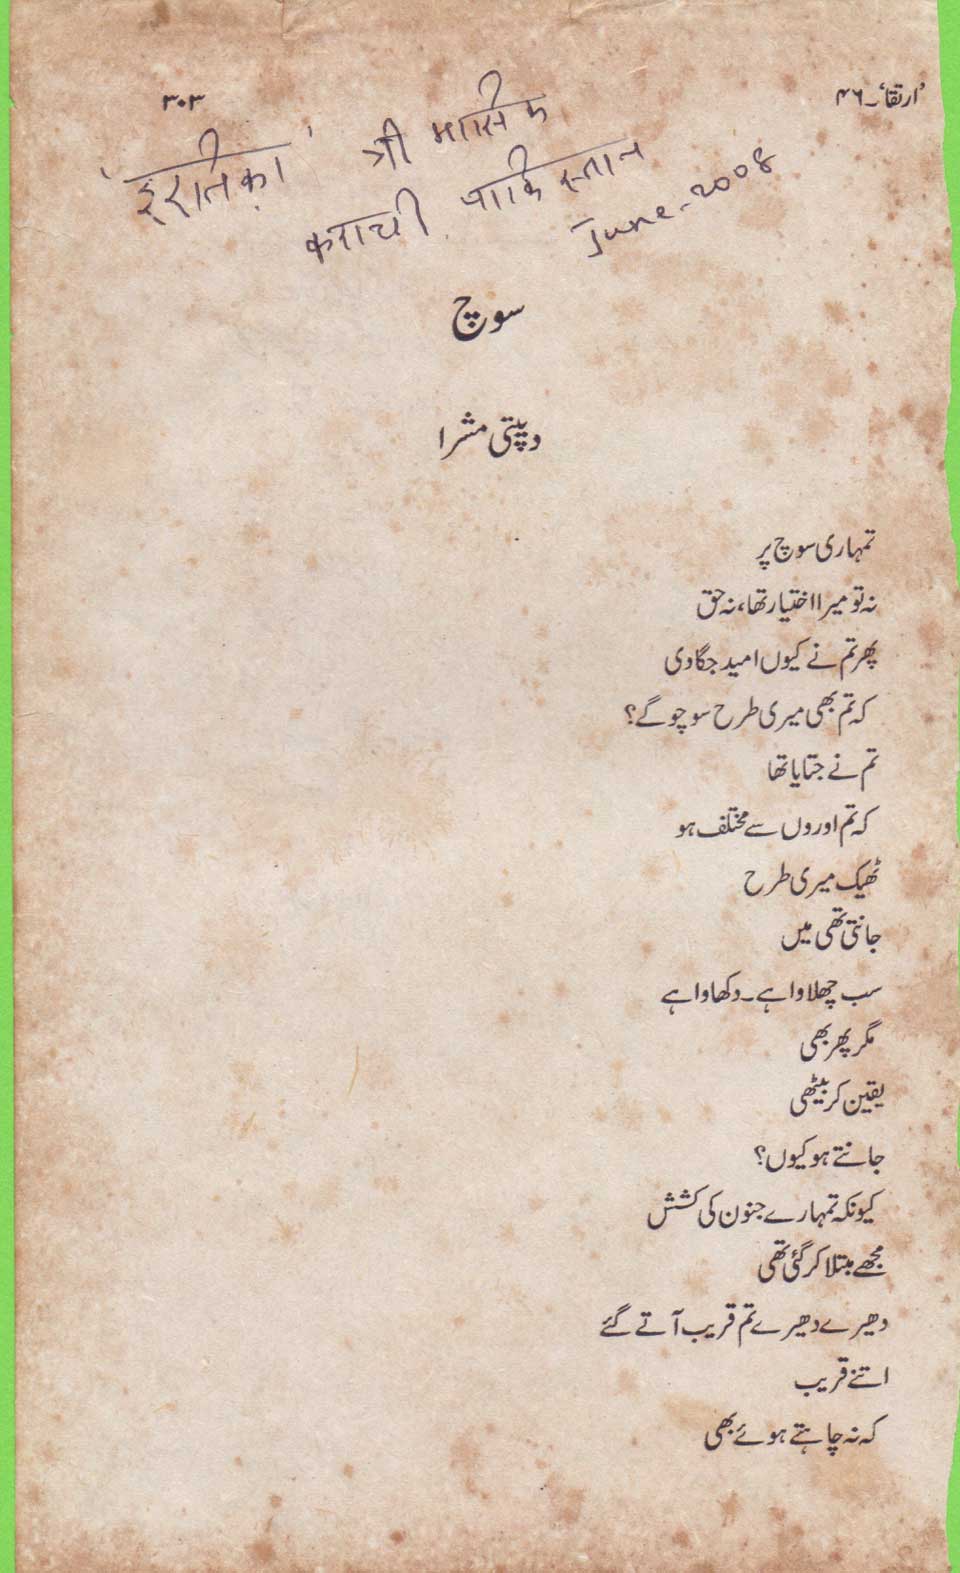 ۳۰۳
'ارتقا'۔۴۶
'इरतिक़ा' त्री मासिक
कराची पाकिस्तान
June-2008
سوچ
دیپتی مشرا
تمہاری سوچ پر
نہ تو میرا اختیار تھا، نہ حق
پھر تم نے کیوں امید جگا دی
کہ تم بھی میری طرح سوچو گے؟
تم نے جتایا تھا
کہ تم اوروں سے مختلف ہو
ٹھیک میری طرح
جانتی تھی میں
سب چھلاوا ہے۔ دکھاوا ہے
مگر پھر بھی
یقین کر بیٹھی
جانتے ہو کیوں؟
کیونکہ تمہارے جنون کی کشش
مجھے مبتلا کر گئی تھی
دھیرے دھیرے تم قریب آتے گئے
اتنے قریب
کہ نہ چاہتے ہوئے بھی